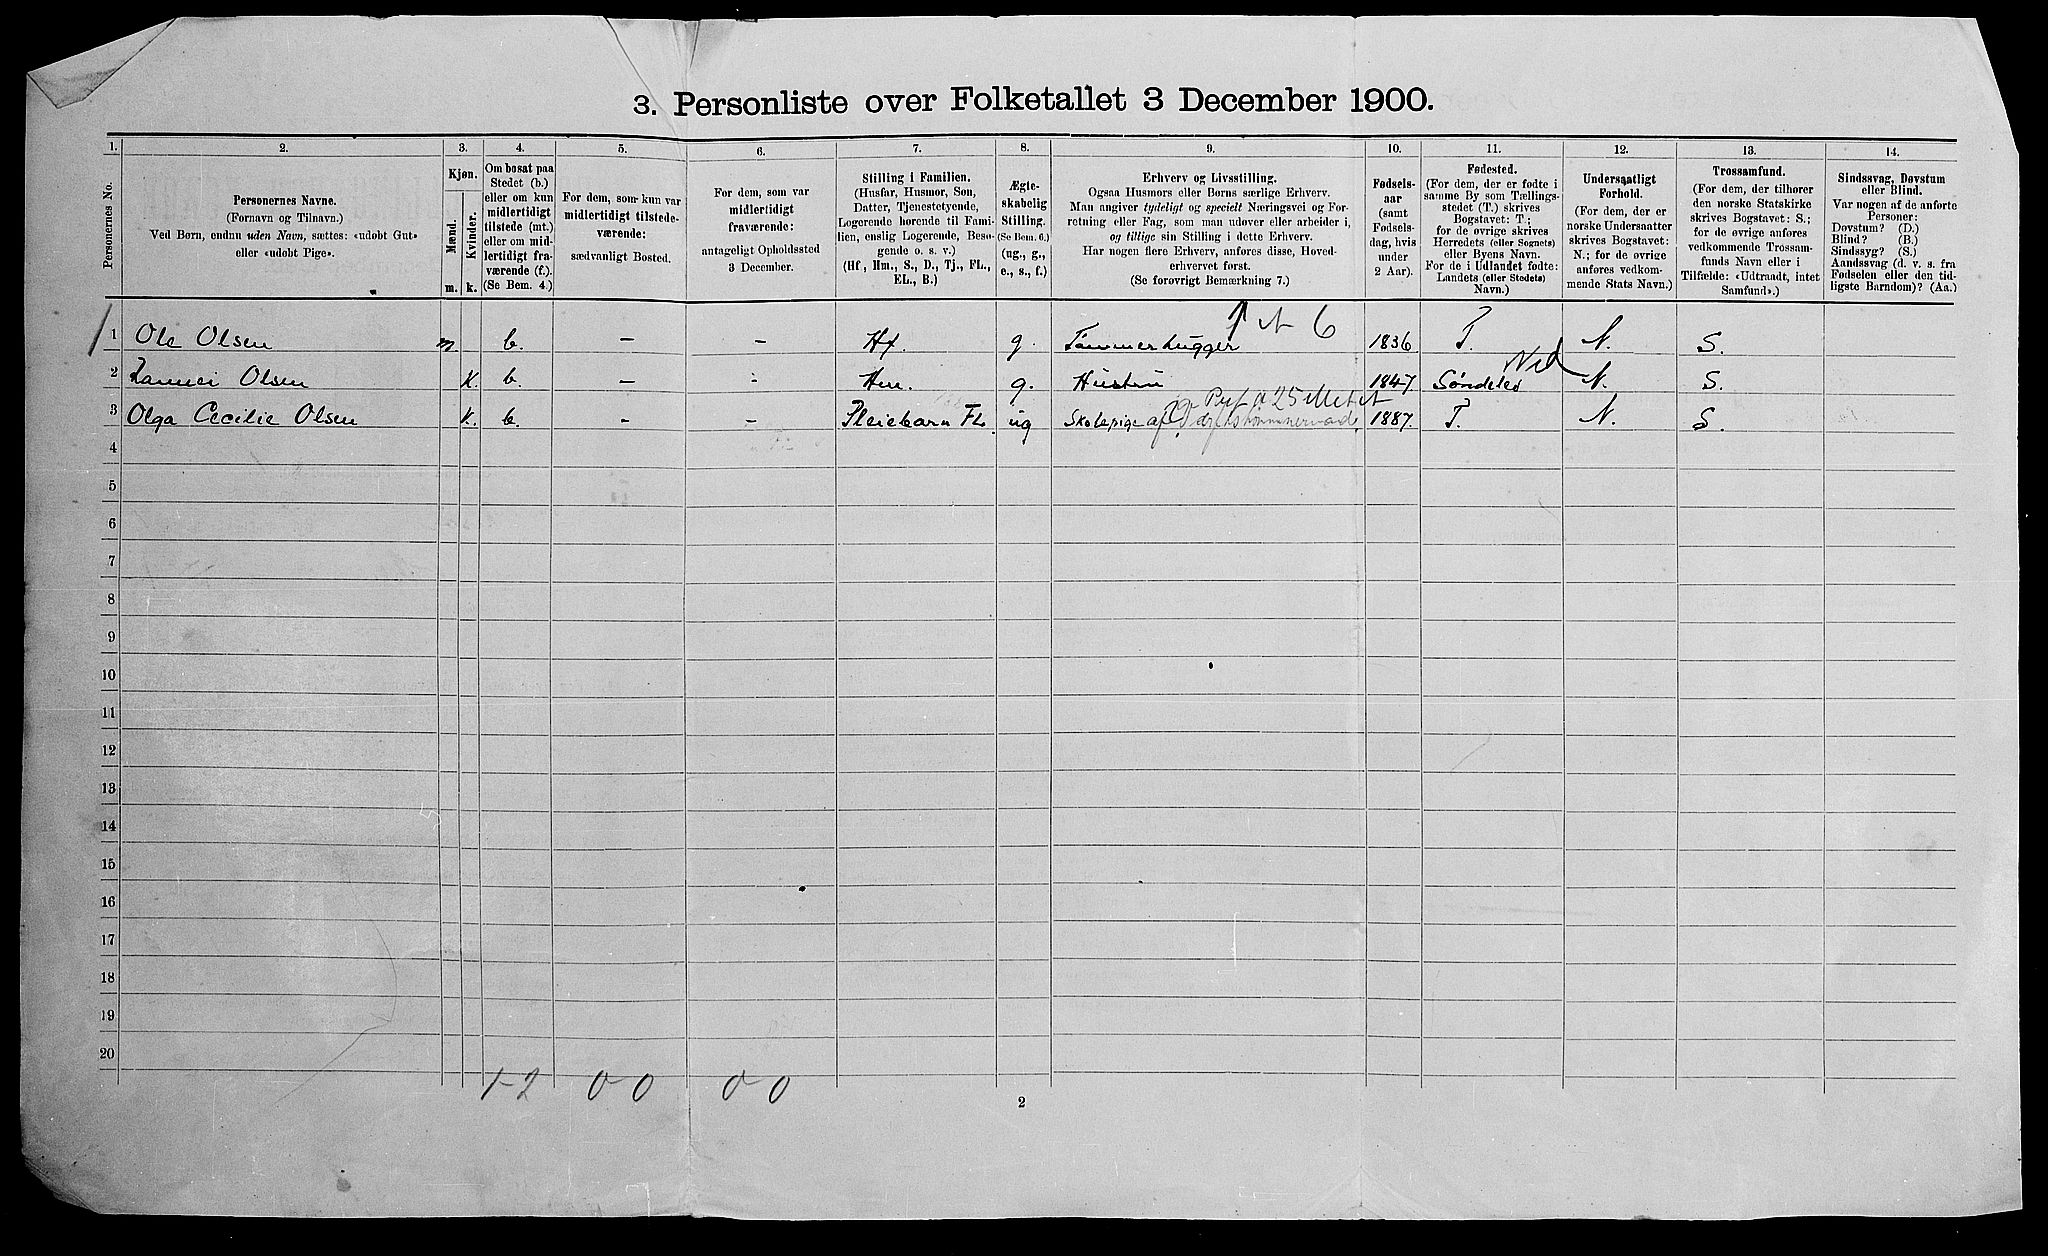 3. Personliste over Folketallet 3 December 1900.
1.
2.
3.
4.
5.
6.
7.
8.
9.
10.
11.
12.
13.
14.
Personernes No.
Personernes Navne.
(Fornavn og Tilnavn.)
Ved Børn, endnu uden Navn, sættes: «udøbt Gut»
eller «udøbt Pige».
Kjøn.
Mænd.
Kvinder.
m.
k.
Om bosat paa
Stedet (b.)
eller om kun
midlertidigt
tilstede (mt.)
eller om mid-
lertidigt fra-
værende (f.).
(Se Bem. 4.)
For dem, som kun var
midlertidigt tilstede-
værende:
sædvanligt Bosted.
For dem, som var
midlertidigt
fraværende:
antageligt Opholdssted
3 December.
Stilling i Familien.
(Husfar, Husmor, Søn,
Datter, Tjenestetyende,
Logerende hørende til Fami-
lien, enslig Logerende, Besø-
gende o. s. v.)
(Hf., Hm., S., D., Tj., FL.,
EL., B.)
Ægte-
skabelig
Stilling.
(Se Bem. 6.)
(ug., g.,
e., s., f.)
Erhverv og Livsstilling.
Ogsaa Husmors eller Børns særlige Erhverv.
Man angiver tydeligt og specielt Næringsvei og For-
retning eller Fag, som man udøver eller arbeider i,
og tillige sin Stilling i dette Erhverv.
Har nogen flere Erhverv, anføres disse, Hoved-
erhvervet først.
(Se forøvrigt Bemærkning 7.)
Fødsels-
aar
(samt
Fødsels-
dag, hvis
under
2 Aar).
Fødested.
(For dem, der er fødte i
samme By som Tællings-
stedet (T.) skrives
Bogstavet: T.;
for de øvrige skrives
Herredets (eller Sognets)
eller Byens Navn.
For de i Udlandet fødte:
Landets (eller Stedets)
Navn.)
Undersaatligt
Forhold.
(For dem, der er
norske Undersaatter
skrives Bogstavet:
N.; for de øvrige
anføres vedkom-
mende Stats Navn.)
Trossamfund.
(For dem, der tilhører
den norske Statskirke
skrives Bogstavet: S.;
for de øvrige anføres
vedkommende Trossam-
funds Navn eller i
Tilfælde: «Udtraadt, intet
Samfund».)
Sindssvag, Døvstum
eller Blind.
Var nogen af de anførte
Personer:
Døvstum? (D.)
Blind? (B.)
Sindssyg? (S.)
Aandssvag (d. v. s. fra
Fødselen eller den tid-
ligste Barndom)? (Aa.)
1 Ole Olsen m. b. – – Hf. g. Tømmerhugger 6 1836 T. N. S.
2 Olsen K. b. – - Hm. g. Hustru 1847 Søndeled Ned N. S.
3 Olga Cecilie Olsen K. b. – – Pleiebarn FL. ug Skolepige af 1887. T. N. S.
4
5
6
7
8
9
10
11
12
13
14
15
16
17
18
19
20
1-2 0-0 0-0
2